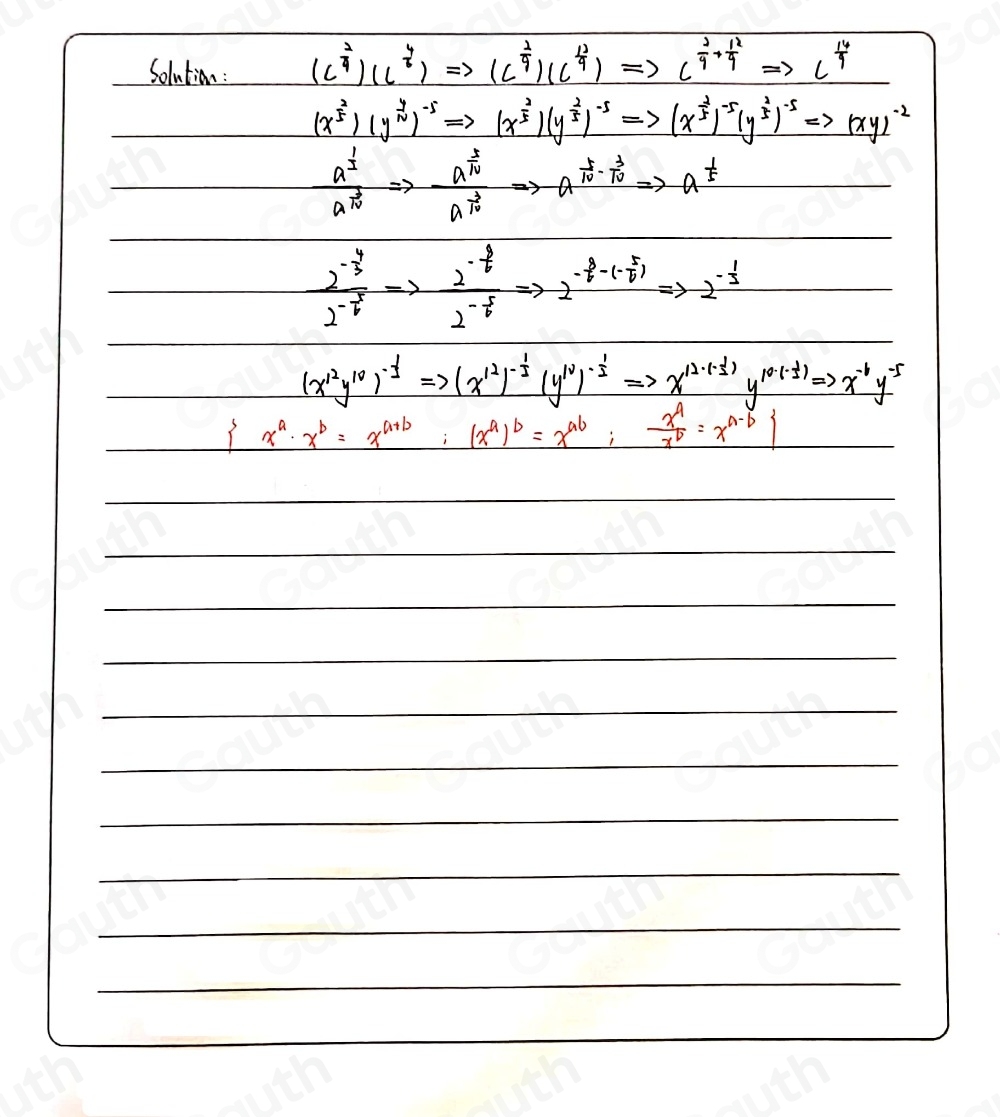 Solution: (c^{2/9})(c^{4/6}) => (c^{2/9})(c^{12/9}) => c^{2/9+12/9} => c^{14/9}
(x^{2/5})(y^{4/10})^{-5} => (x^{2/5})(y^{2/5})^{-5} => (x^{2/5})^{-5}(y^{2/5})^{-5} => (xy)^{-2}
a^{1/2}/a^{3/10} => a^{5/10}/a^{3/10} => a^{5/10-3/10} => a^{1/5}
2^{-4/3}/2^{-5/6} => 2^{-8/6}/2^{-5/6} => 2^{-8/6-(-5/6)} => 2^{-1/2}
(x^{12}y^{10})^{-1/2} => (x^{12})^{-1/2}(y^{10})^{-1/2} => x^{12·(-1/2)} y^{10·(-1/2)} => x^{-6}y^{-5}
{ x^a · x^b = x^{a+b} ; (x^a)^b = x^{ab} ; x^a/x^b = x^{a-b} }